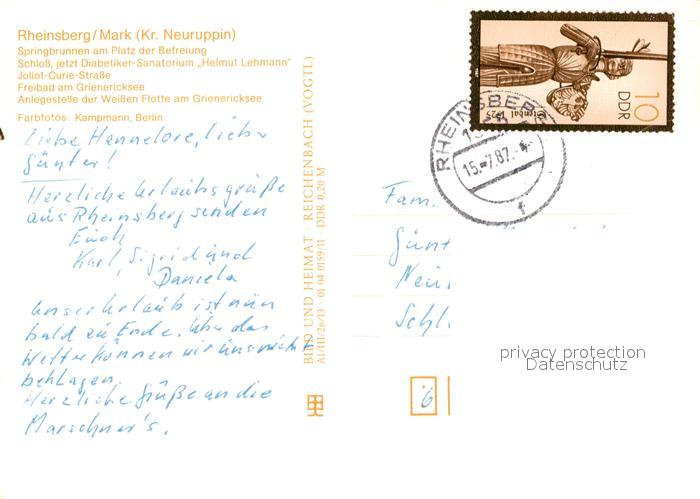 Rheinsberg/Mark (Kr. Neuruppin)
Springbrunnen am Platz der Befreiung
Schloß, jetzt Diabetiker-Sanatorium „Helmut Lehmann"
Joliot-Curie-Straße
Freibad am Grienericksee
Anlegestelle der Weißen Flotte am Grienericksee
Farbfotos: Kampmann, Berlin
Liebe Hannelore, lieber
Günter!
Herzliche Urlaubsgrüße
aus Rheinsberg senden
Euch
Karl, Sigrid und
Daniela
Unser Urlaub ist nun
bald zu Ende. Über das
Wetter können wir uns nicht
beklagen.
Herzliche Grüße an die
Marschner's.
BILD UND HEIMAT · REICHENBACH (VOGTL)
A1/III/26/13 · 01 04 0159/11 DDR 0,20 M
10
DDR
1525
RHEINSBERG
15.-7.87.
f
Fam.
Günt
Neu
Schl
6
privacy protection
Datenschutz